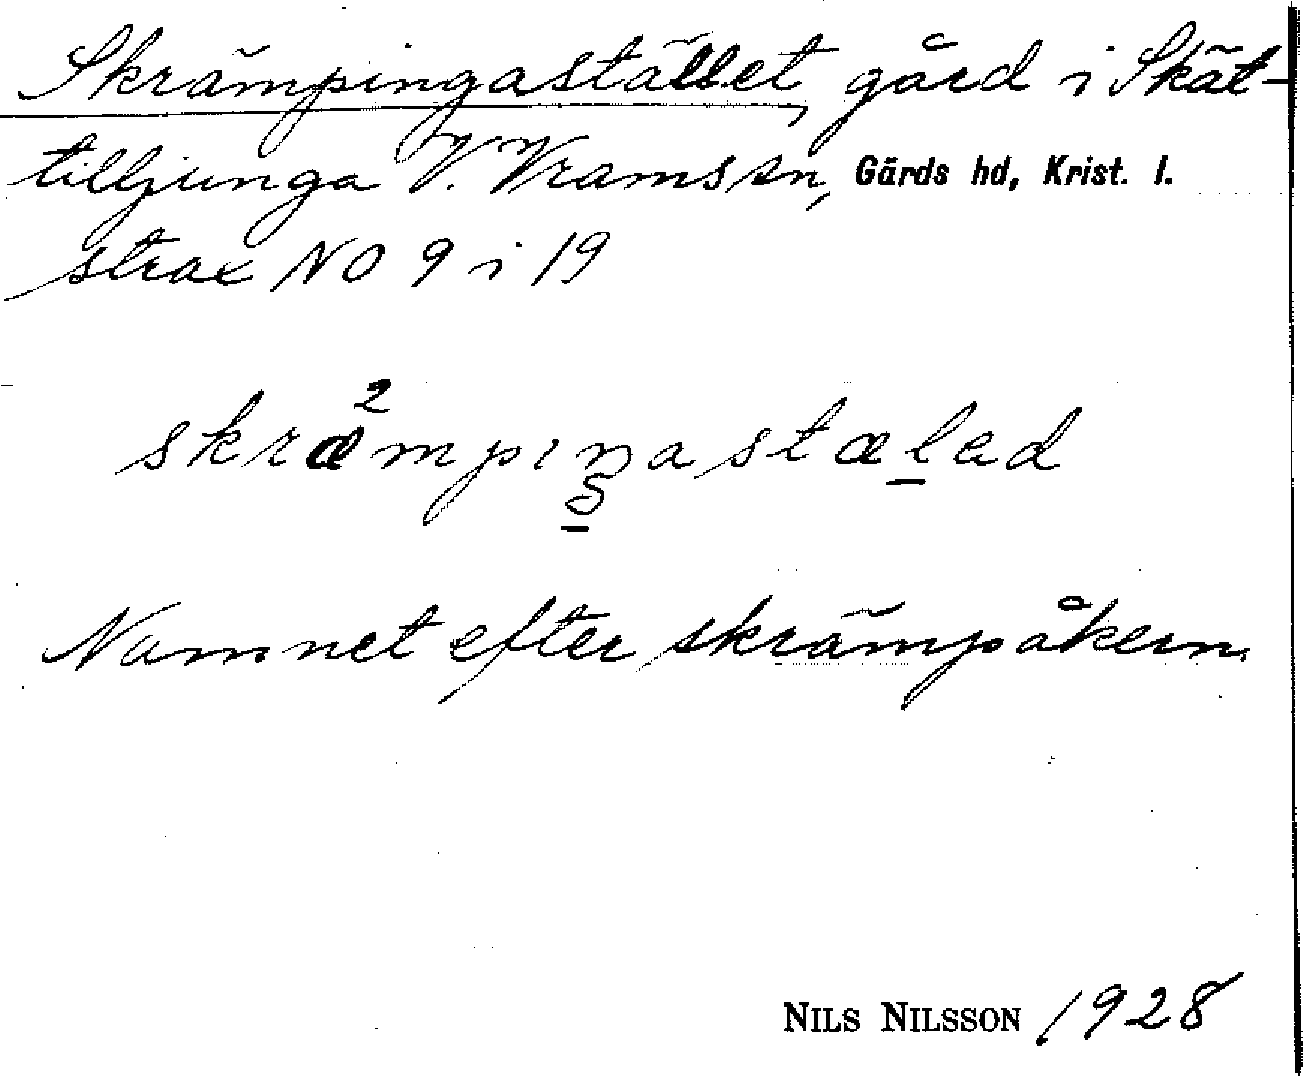 Skrämpingastället, gård i Skät-
tilljunga V. Vrams sn, Gärds hd, Krist. l.
strax NO 9 i 19
skræ²mpıŋastælad
Namnet efter skrämpåkern.
NILS NILSSON 1928